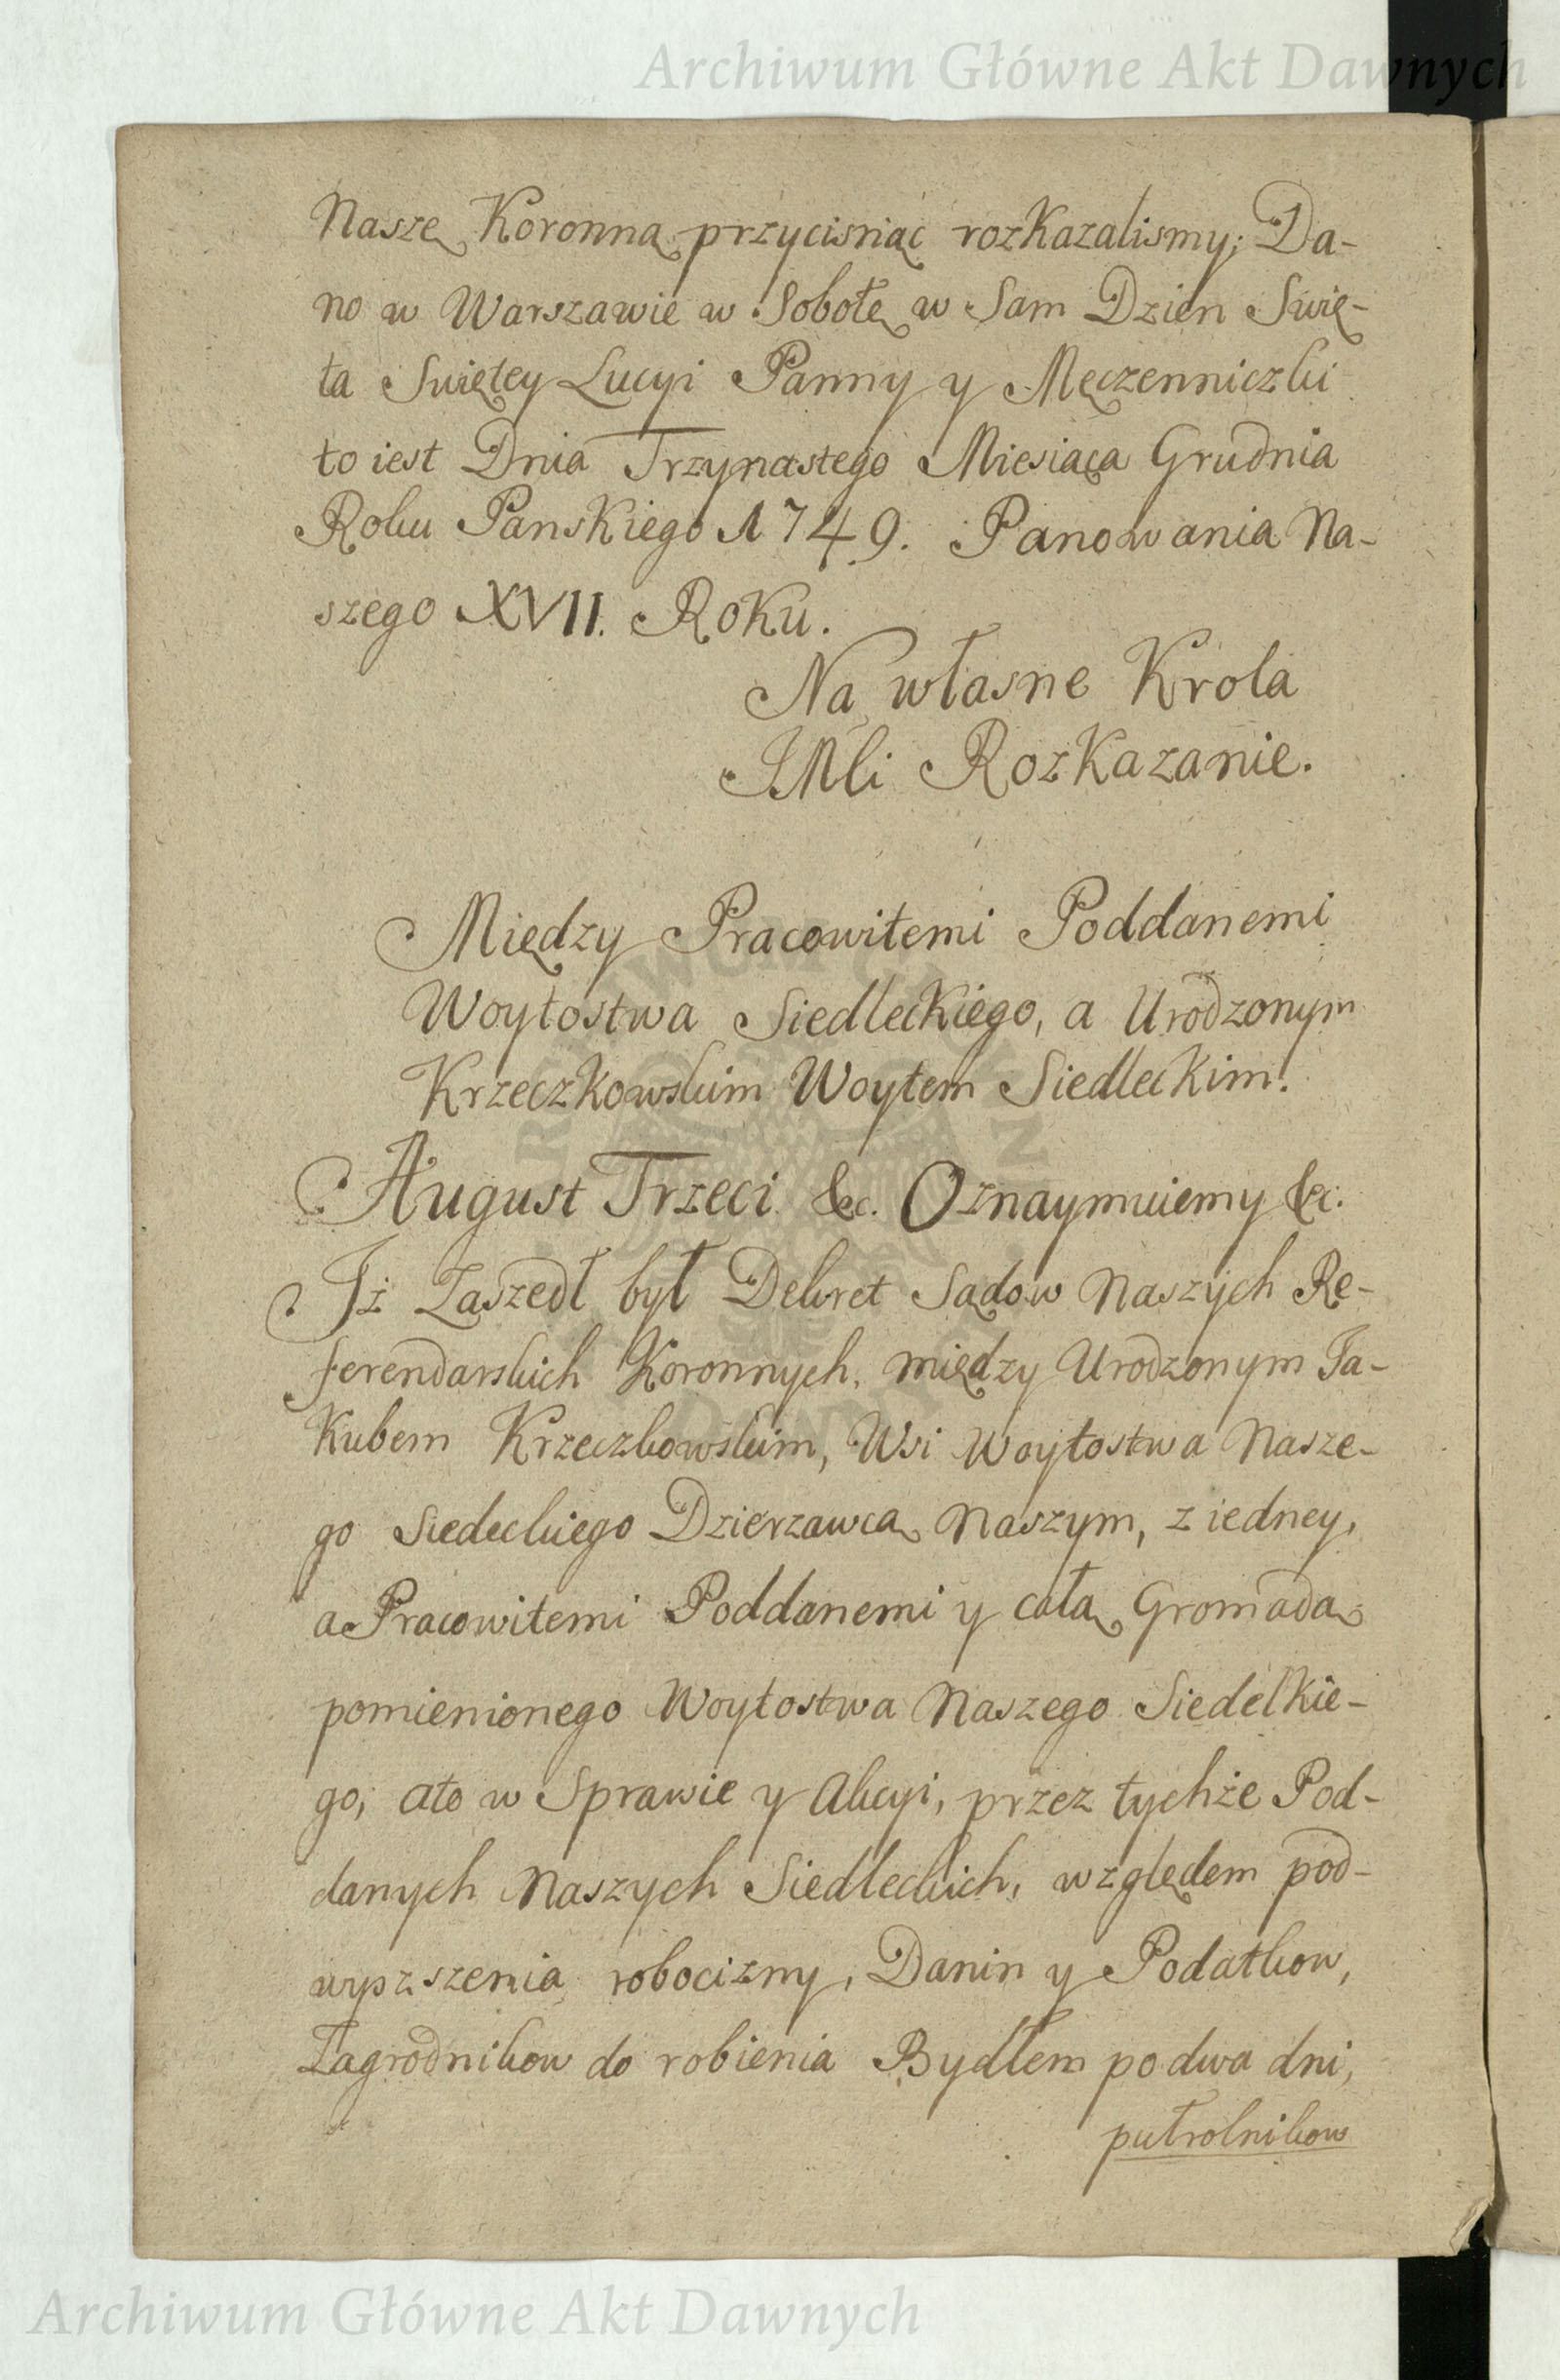 Archiwum Główne Akt Dawnych
Naszę Koronną przycisnąć rozkazalismy; Da-
no w Warszawie w Sobotę w Sam Dzien Swię-
ta Swiętey Lucyi Panny y Męczenniczki
to iest Dnia Trzynastego Miesiąca Grudnia
Roku Panskiego 1749. Panowania Na-
szego XVII. Roku.
Na własne Krola
JMci Rozkazanie.
Między Pracowitemi Poddanemi
Woytostwa Siedleckiego, a Urodzonym
Krzeczkowskim Woytem Siedleckim.
August Trzeci &c. Oznaymuiemy &c.
Iż Zaszedł był Dekret Sądow Naszych Re-
ferendarskich Koronnych, między Urodzonym Ja-
kubem Krzeczkowskim, Wsi Woytostwa Nasze-
go Siedeckiego Dzierzawcą Naszym, z iedney,
a Pracowitemi Poddanemi y całą Gromadą
pomienionego Woytostwa Naszego Siedelkie-
go, ato w Sprawie y Akcyi, przez tychże Pod-
danych Naszych Siedleckich, względem pod-
wyzszenia robocizny, Danin y Podatkow,
Zagrodnikow do robienia Bydłem po dwa dni,
pułrolnikow
Archiwum Główne Akt Dawnych